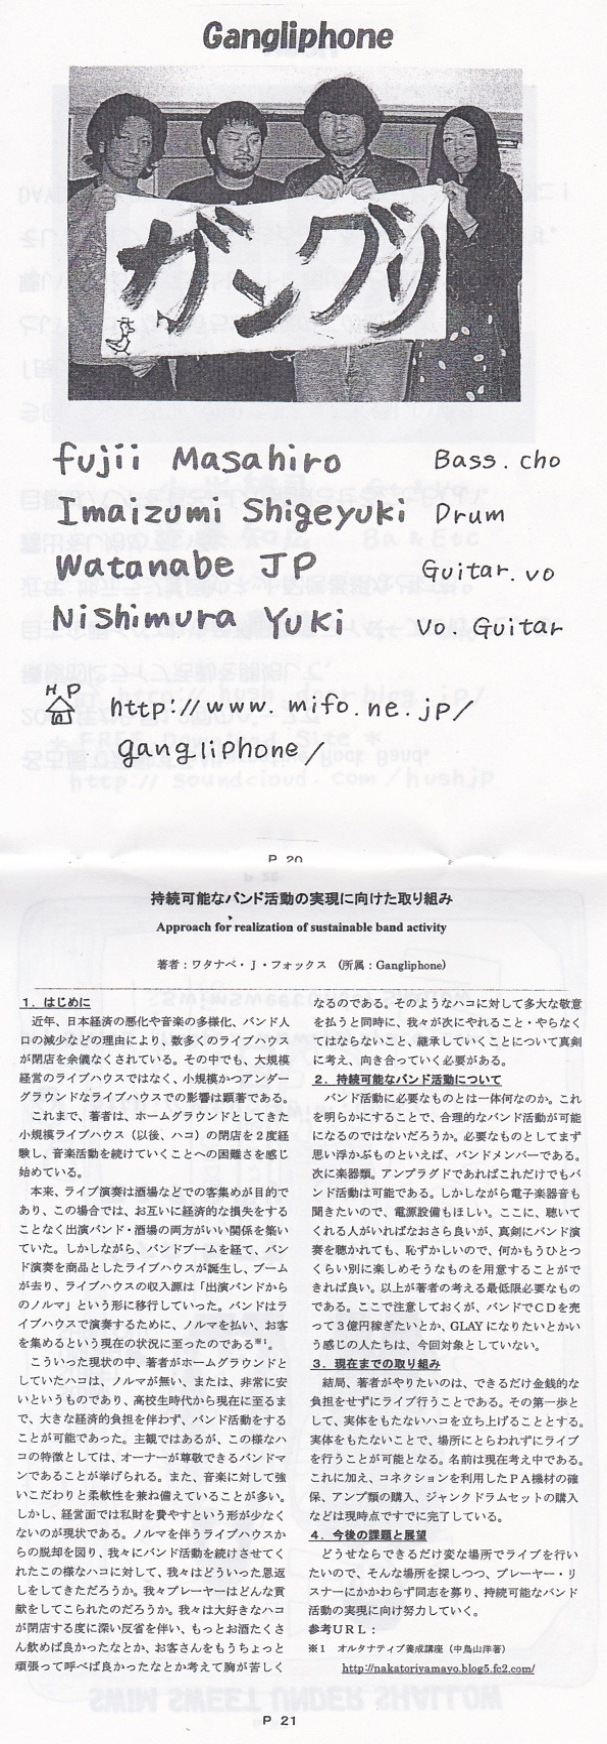 Gangliphone
ガングリ
fujii Masahiro Bass. cho
Imaizumi Shigeyuki Drum
Watanabe JP Guitar. vo
Nishimura Yuki vo. Guitar
HP http://www.mifo.ne.jp/
gangliphone/
P 20
持続可能なバンド活動の実現に向けた取り組み
Approach for realization of sustainable band activity
著者：ワタナベ・J・フォックス （所属：Gangliphone）
1．はじめに
近年、日本経済の悪化や音楽の多様化、バンド人
口の減少などの理由により、数多くのライブハウス
が閉店を余儀なくされている。その中でも、大規模
経営のライブハウスではなく、小規模かつアンダー
グラウンドなライブハウスでの影響は顕著である。
これまで、著者は、ホームグラウンドとしてきた
小規模ライブハウス（以後、ハコ）の閉店を２度経
験し、音楽活動を続けていくことへの困難さを感じ
始めている。
本来、ライブ演奏は酒場などでの客集めが目的で
あり、この場合では、お互いに経済的な損失をする
ことなく出演バンド・酒場の両方がいい関係を築い
ていた。しかしながら、バンドブームを経て、バン
ド演奏を商品としたライブハウスが誕生し、ブーム
が去り、ライブハウスの収入源は「出演バンドから
のノルマ」という形に移行していった。バンドはラ
イブハウスで演奏するために、ノルマを払い、お客
を集めるという現在の状況に至ったのである※1。
こういった現状の中、著者がホームグラウンドと
していたハコは、ノルマが無い、または、非常に安
いというものであり、高校生時代から現在に至るま
で、大きな経済的負担を伴わず、バンド活動をする
ことが可能であった。主観ではあるが、この様なハ
コの特徴としては、オーナーが尊敬できるバンドマ
ンであることが挙げられる。また、音楽に対して強
いこだわりと柔軟性を兼ね備えていることが多い。
しかし、経営面では私財を費やすという形が少なく
ないのが現状である。ノルマを伴うライブハウスか
らの脱却を図り、我々にバンド活動を続けさせてく
れたこの様なハコに対して、我々はどういった恩返
しをしてきただろうか。我々プレーヤーはどんな貢
献をしてこられたのだろうか。我々は大好きなハコ
が閉店する度に深い反省を伴い、もっとお酒たくさ
ん飲めば良かったなとか、お客さんをもうちょっと
頑張って呼べば良かったなとか考えて胸が苦しく
なるのである。そのようなハコに対して多大な敬意
を払うと同時に、我々が次にやれること・やらなく
てはならないこと、継承していくことについて真剣
に考え、向き合っていく必要がある。
2．持続可能なバンド活動について
バンド活動に必要なものとは一体何なのか。これ
を明らかにすることで、合理的なバンド活動が可能
になるのではないだろうか。必要なものとしてまず
思い浮かぶものといえば、バンドメンバーである。
次に楽器類。アンプラグドであればこれだけでもバ
ンド活動は可能である。しかしながら電子楽器音も
聞きたいので、電源設備もほしい。ここに、聴いて
くれる人がいればなおさら良いが、真剣にバンド演
奏を聴かれても、恥ずかしいので、何かもうひとつ
くらい別に楽しめそうなものを用意することがで
きれば良い。以上が著者の考える最低限必要なもの
である。ここで注意しておくが、バンドでＣＤを売
って３億円稼ぎたいとか、GLAYになりたいとかい
う感じの人たちは、今回対象としていない。
3．現在までの取り組み
結局、著者がやりたいのは、できるだけ金銭的な
負担をせずにライブ行うことである。その第一歩と
して、実体をもたないハコを立ち上げることとする。
実体をもたないことで、場所にとらわれずにライブ
を行うことが可能となる。名前は現在考え中である。
これに加え、コネクションを利用したＰＡ機材の確
保、アンプ類の購入、ジャンクドラムセットの購入
などは現時点ですでに完了している。
4．今後の課題と展望
どうせならできるだけ変な場所でライブを行い
たいので、そんな場所を探しつつ、プレーヤー・リ
スナーにかかわらず同志を募り、持続可能なバンド
活動の実現に向け努力していく。
参考ＵＲＬ：
※1 オルタナティブ養成講座（中鳥山洋著）
http://nakatoriyamayo.blog5.fc2.com/
P 21